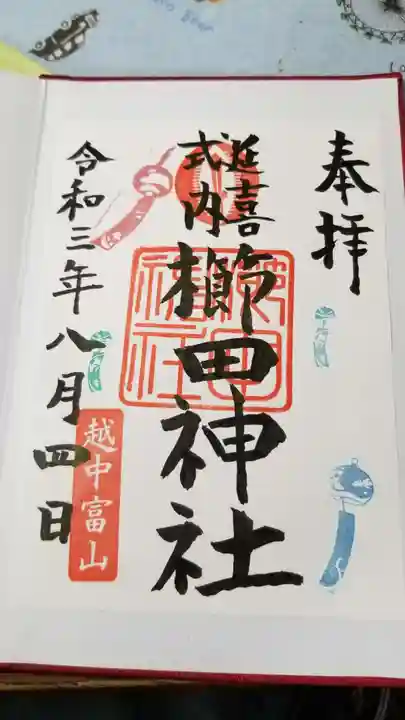 奉拝
延喜
式内
櫛田神社
櫛田神社
令和三年八月四日
越中富山